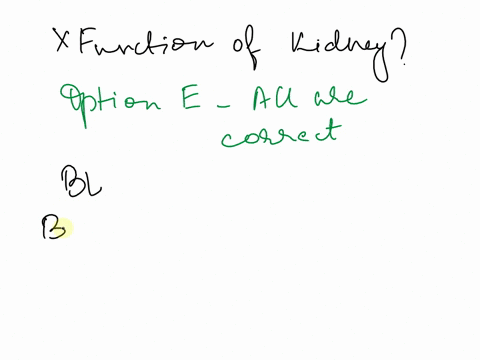 X Function of Kidney?
Option E - All are
correct
BL
B